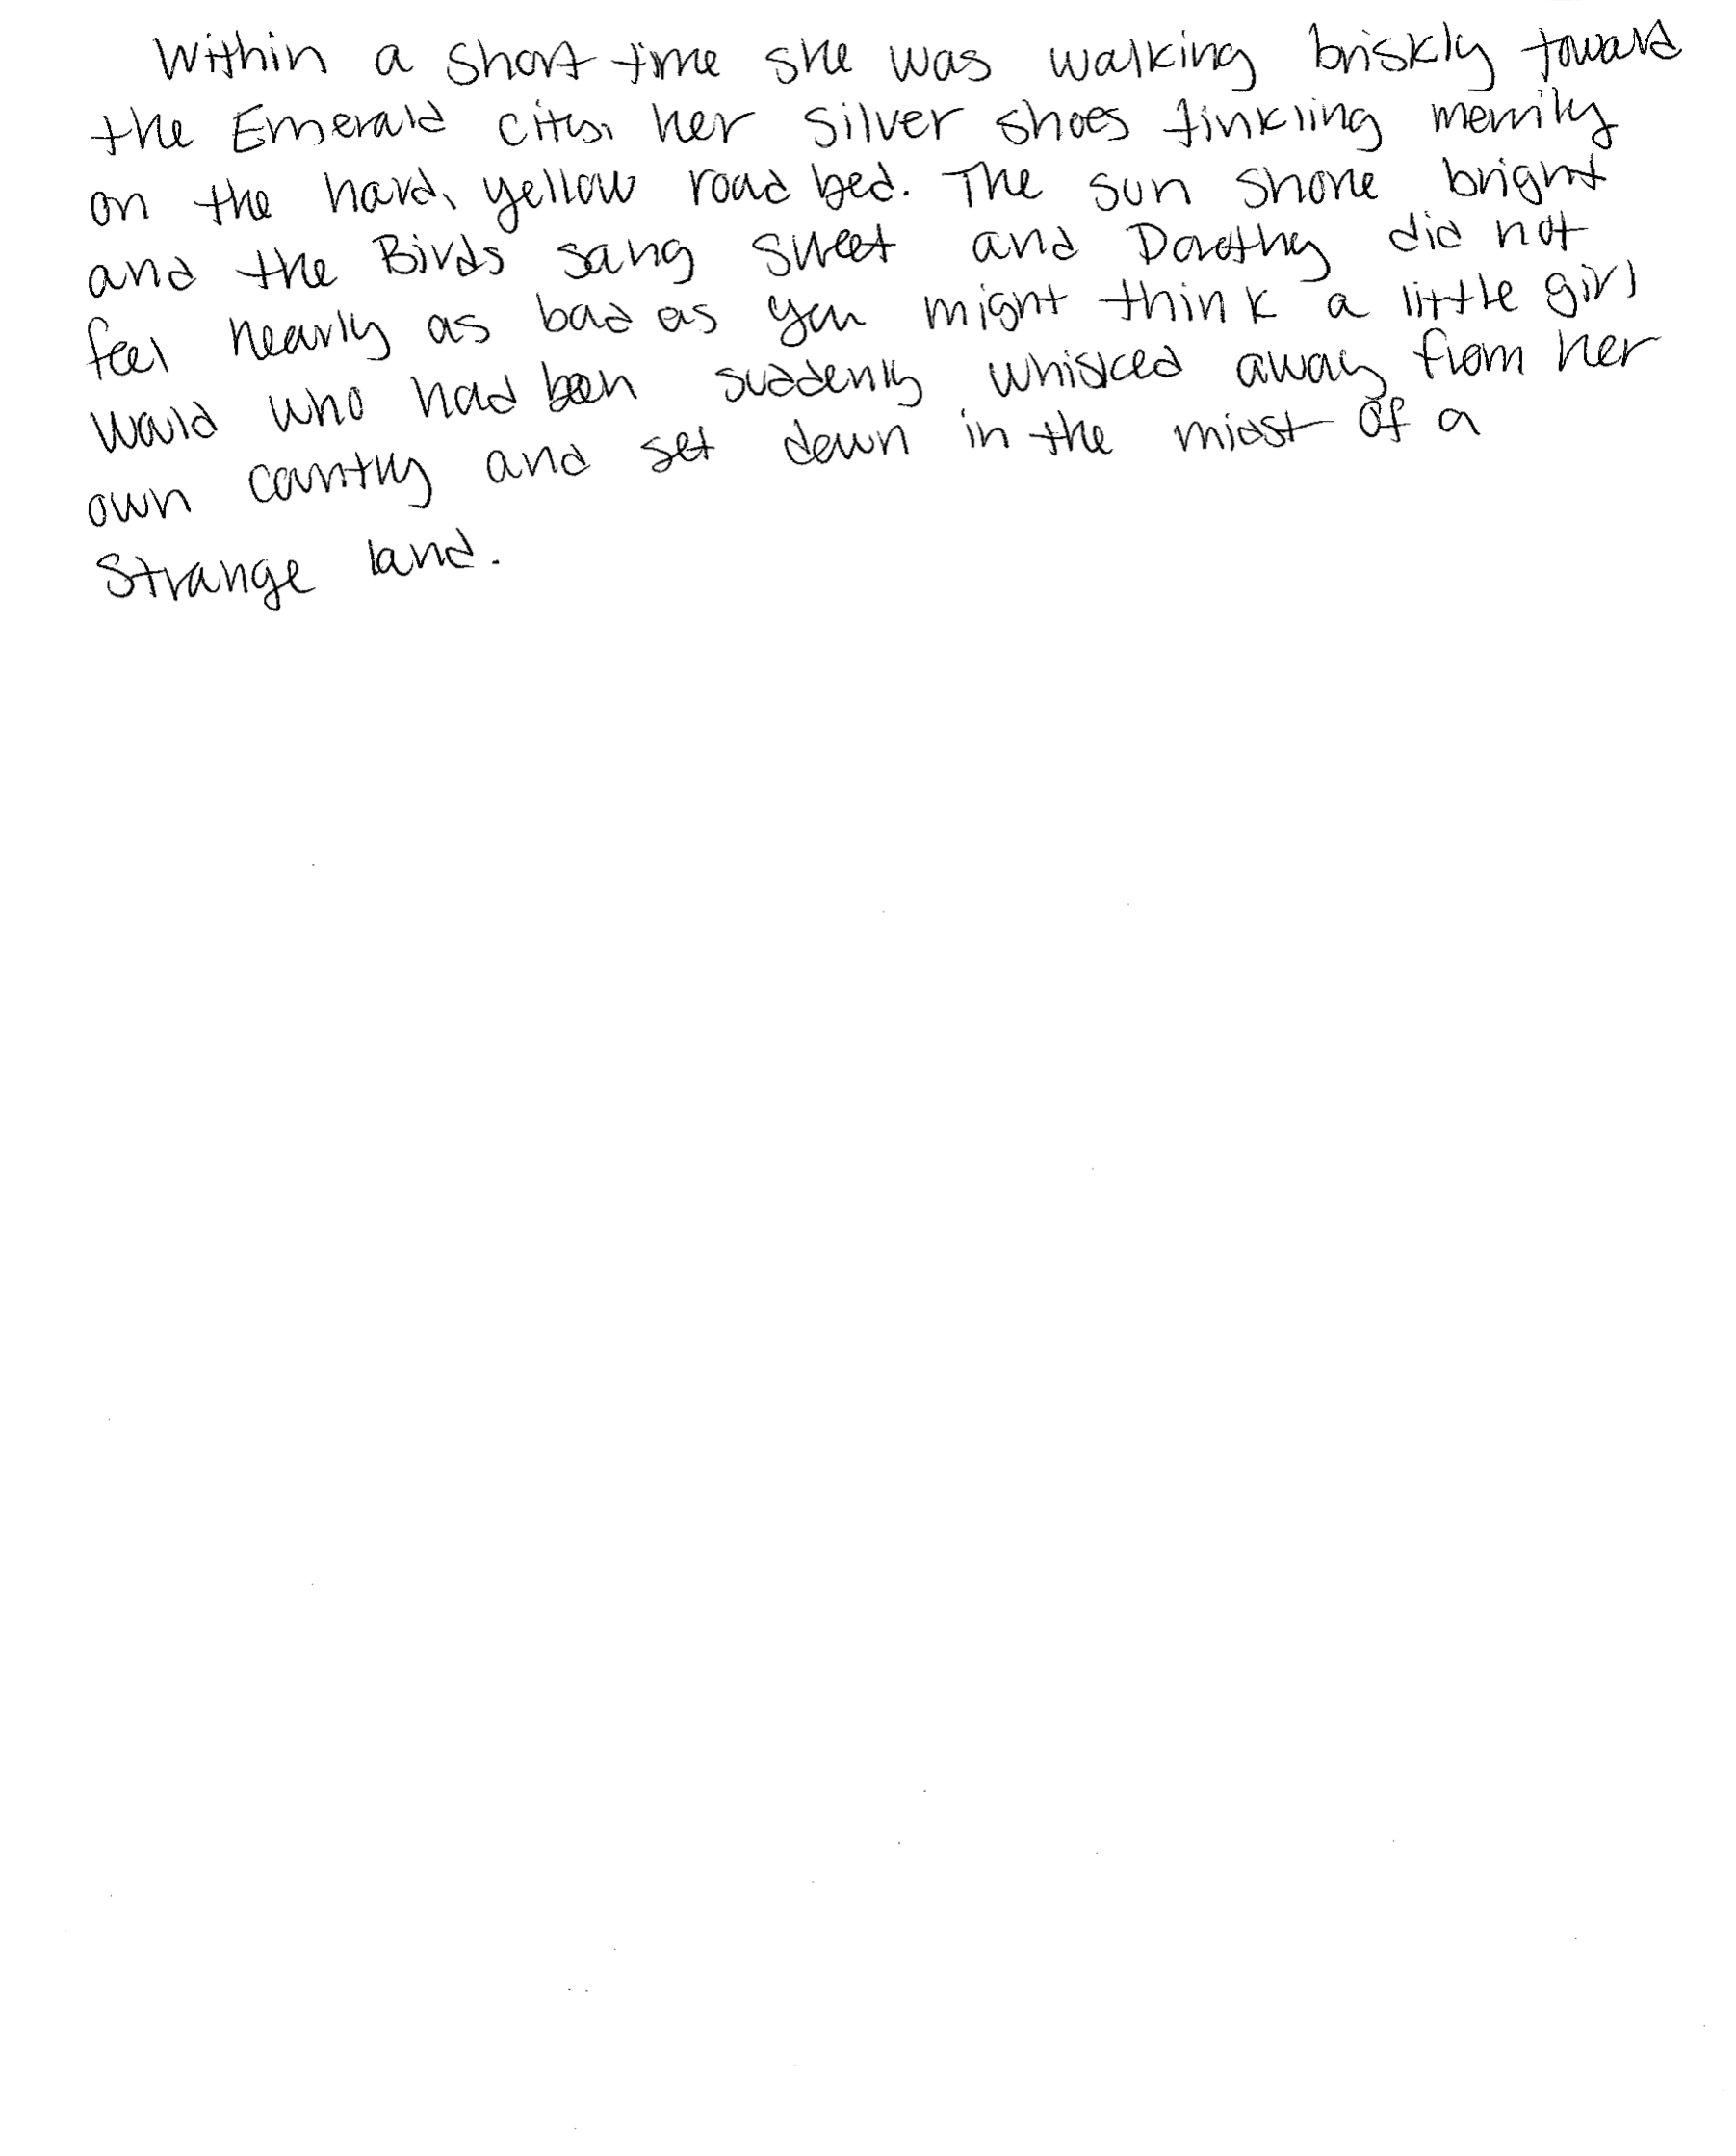 Within a short time she was walking briskly toward
the Emerald city, her silver shoes tinkling merrily
on the hard, yellow road bed. The sun shone bright
and the Birds sang sweet and Dorothy did not
feel nearly as bad as you might think a little girl
would who had been suddenly whisked away from her
own country and set down in the midst of a
strange land.